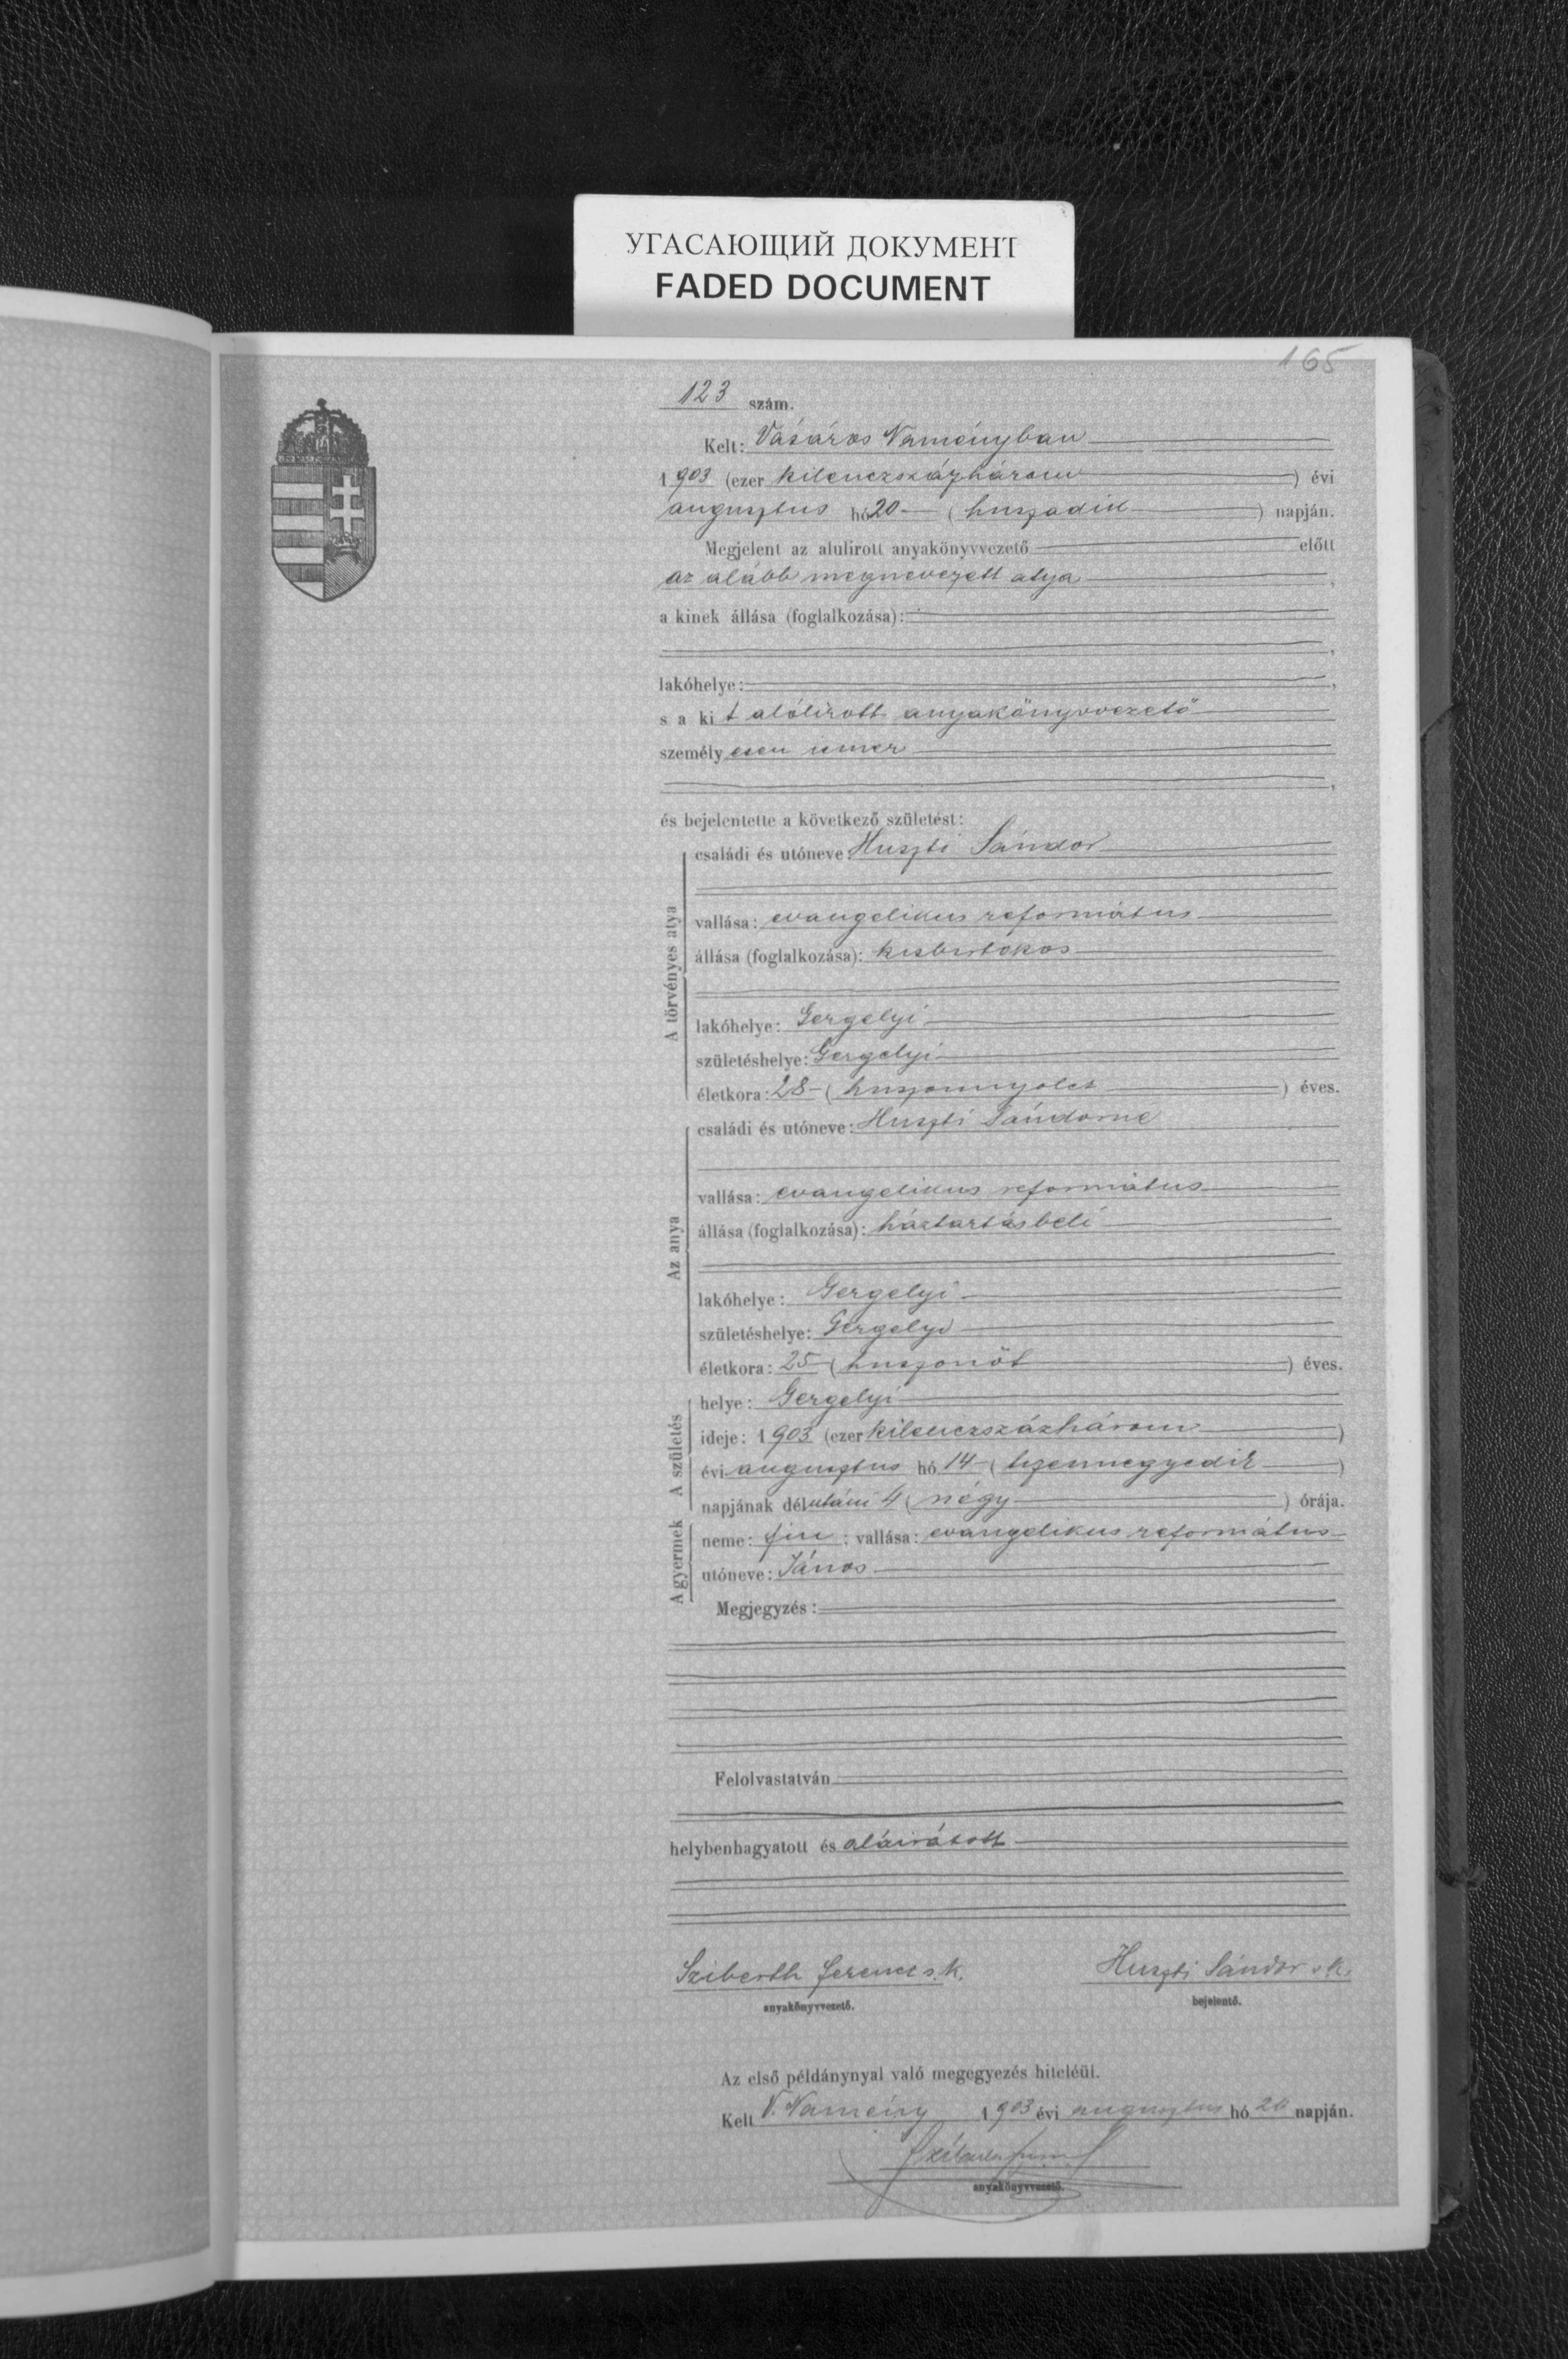 УГАСАЮЩИЙ ДОКУМЕНТ
FADED DOCUMENT
165
123 szám.
Kelt: Vásáros Naményban
1903 (ezer kilenczszázhárom) évi
augusztus hó 20 (huszadik) napján.
Megjelent az alulirott anyakönyvvezető előtt
az alább megnevezett atya,
a kinek állása (foglalkozása):
lakóhelye:
s a kit alólirott anyakönyvvezető
személyesen ismer
és bejelentette a következő születést:
A törvényes atya
családi és utóneve: Huszti Sándor
vallása: evangelikus református
állása (foglalkozása): kisbirtokos
lakóhelye: Gergelyi
születéshelye: Gergelyi
életkora: 28 (huszonnyolcz) éves.
Az anya
családi és utóneve: Huszti Sándorné
vallása: evangelikus református
állása (foglalkozása): háztartásbeli
lakóhelye: Gergelyi
születéshelye: Gergelyi
életkora: 25 (huszonöt) éves.
A születés
helye: Gergelyi
ideje: 1903 (ezer kilenczszázhárom)
évi augusztus hó 14 (tizennegyedik)
napjának délutáni 4 (négy) órája.
A gyermek
neme: fiu; vallása: evangelikus református
utóneve: János
Megjegyzés:
Felolvastatván
helybenhagyatott és aláiratott
Sziberth Ferencz s. k. Huszti Sándor s. k.
anyakönyvvezető. bejelentő.
Az első példánynyal való megegyezés hiteléül.
Kelt V. Namény 1903 évi augusztus hó 20 napján.
anyakönyvvezető.